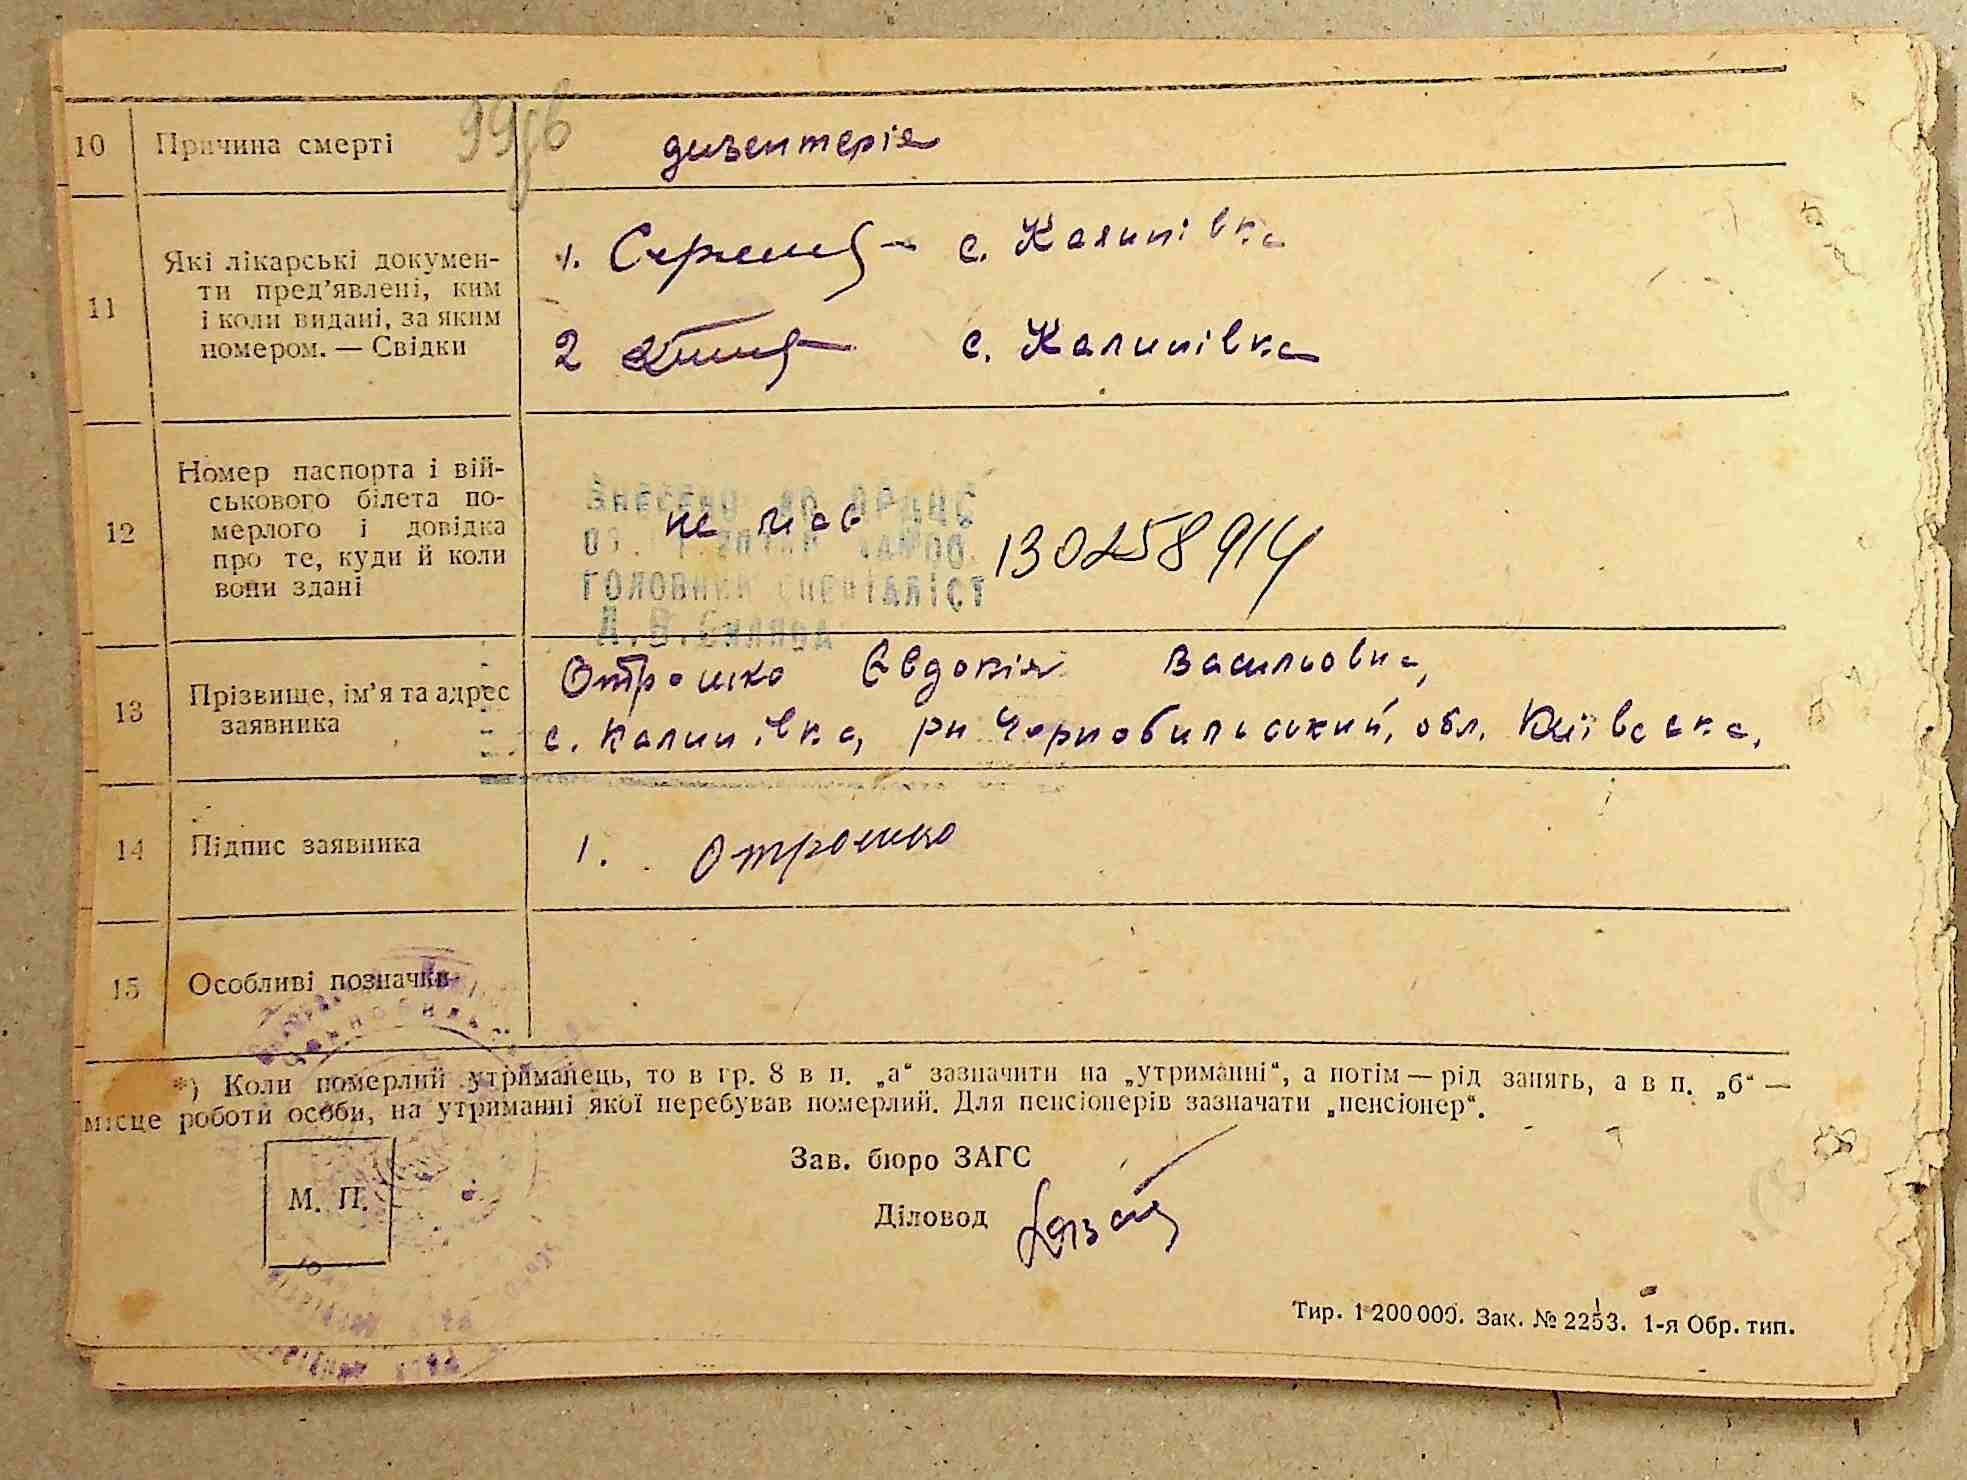 10 Причина смерті дизентерія
11 Які лікарські докумен-
ти пред’явлені, ким
і коли видані, за яким
номером. — Свідки
1. с. Калинівка
2 с. Калинівка
12 Номер паспорта і вій-
ськового білета по-
мерлого і довідка
про те, куди й коли
вони здані
Внесено до
не мав
130258914
головний спеціаліст
13 Прізвище, ім’я та адрес
заявника
Отрошко Євдокія Васильовна,
с. Калинівка, рн Чорнобильський, обл. Київська.
14 Підпис заявника 1. Отрошко
15 Особливі позначки
*) Коли померлий утриманець, то в гр. 8 в п. „а“ зазначити на „утриманні“, а потім — рід занять, а в п. „б“ —
місце роботи особи, на утриманні якої перебував померлий. Для пенсіонерів зазначати „пенсіонер“.
Зав. бюро ЗАГС
М. П.
Діловод
Тир. 1 200 000. Зак. № 2253. 1-я Обр. тип.